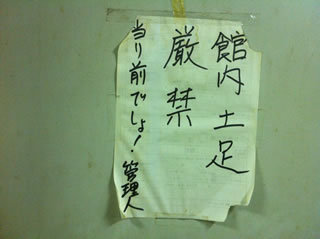 館内土足
厳禁
当り前でしょ！管理人